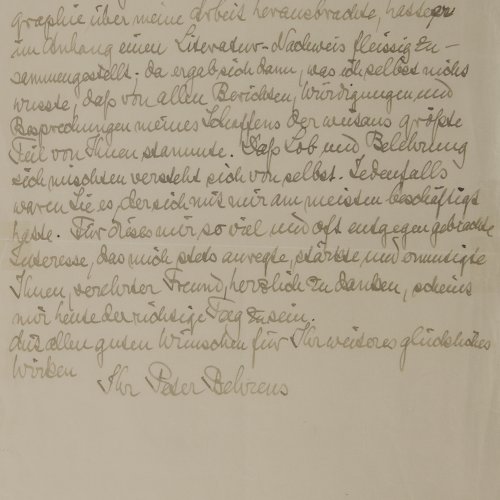 graphie über meine Arbeit herausbrachte, hatte er
im Anhang einen Literatur-Nachweis fleissig zu-
sammengestellt. da ergab sich dann, was ich selbst nicht
wusste, daß von allen Berichten, Würdigungen und
Besprechungen meines Schaffens der weitaus größte
Teil von Ihnen stammte. Daß Lob und Belehrung
sich mischten versteht sich von selbst. Jedenfalls
waren Sie es, der sich mit mir am meisten beschäftigt
hatte. Für dieses mir so viel und oft entgegengebrachte
Interesse, das mich stets anregte, stärkte und ermutigte
Ihnen, verehrter Freund, herzlich zu danken, scheint
mir heute der richtige Tag zu sein.
Mit allen guten Wünschen für Ihr weiteres glückliches
Wirken
Ihr Peter Behrens